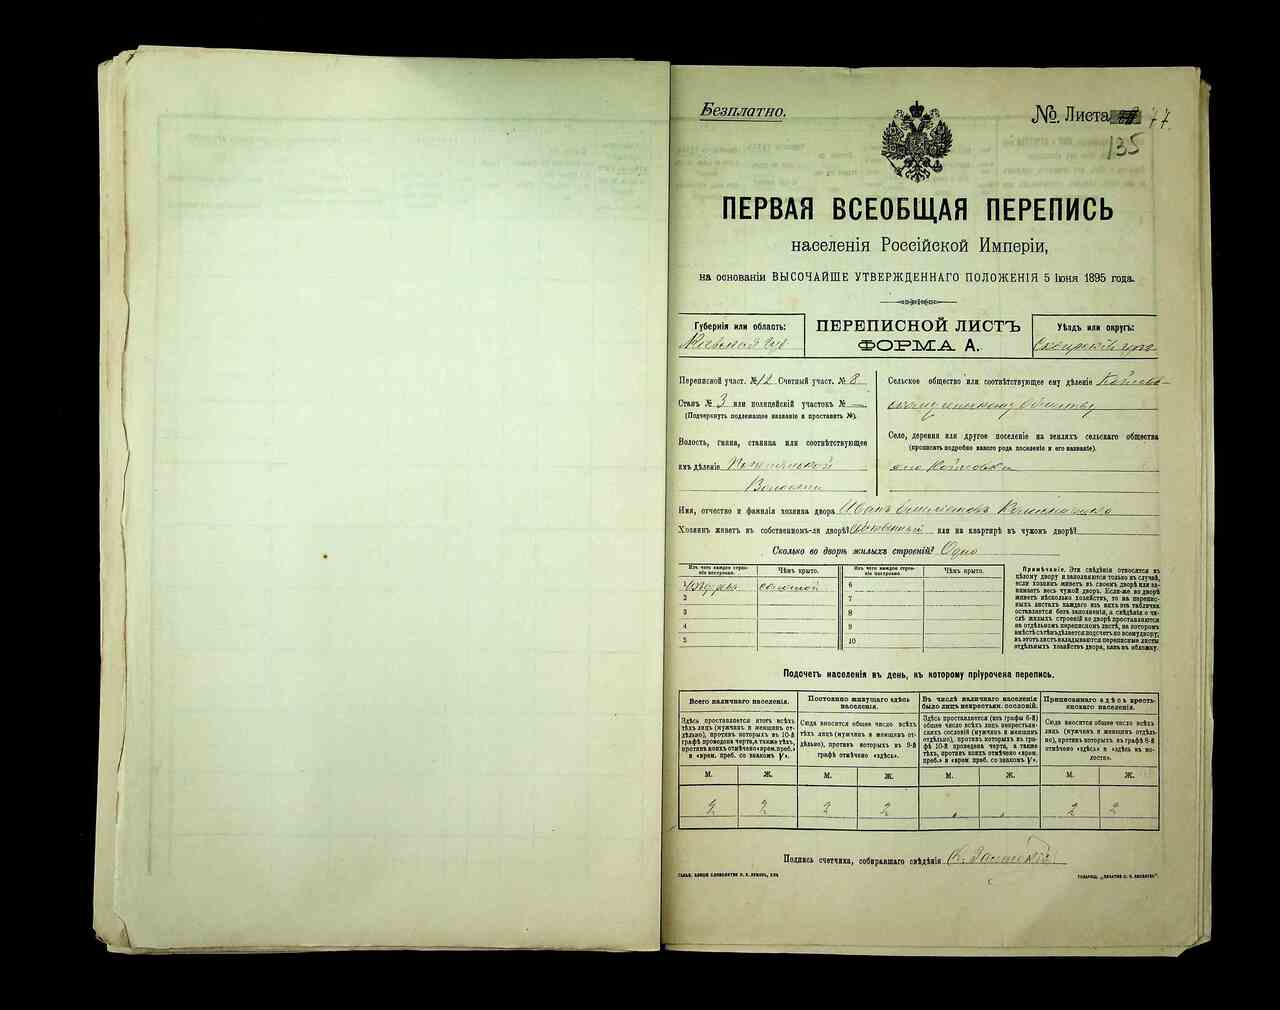 Безплатно.
№. Листа 77.
135
ПЕРВАЯ ВСЕОБЩАЯ ПЕРЕПИСЬ
населенія Россійской Имперіи,
на основаніи ВЫСОЧАЙШЕ УТВЕРЖДЕННАГО ПОЛОЖЕНІЯ 5 Іюня 1895 года.
Губернія или область:
Кіевская губ
ПЕРЕПИСНОЙ ЛИСТЪ
ФОРМА А.
Уѣздъ или округъ:
Сквирскій
Переписной участ. № 12 Счетный участ. № 8
Станъ № 3 или полицейскій участокъ № —
(Подчеркнуть подлежащее названіе и проставить №).
Волость, гмина, станица или соотвѣтствующее
имъ дѣленіе
Волости
Сельское общество или соотвѣтствующее ему дѣленіе
обществу
Село, деревня или другое поселеніе на земляхъ сельскаго общества
(прописать подробно какого рода поселеніе и его названіе).
Имя, отчество и фамилія хозяина двора Иванъ
Хозяинъ живетъ въ собственномъ-ли дворѣ? собственный или на квартирѣ въ чужомъ дворѣ?
Сколько во дворѣ жилыхъ строеній? Одно
Изъ чего каждое строеніе построено.
Чѣмъ крыто.
Изъ чего каждое строеніе построено.
Чѣмъ крыто.
соломой
6
2
7
3
8
4
9
5
10
Примѣчаніе. Эти свѣдѣнія относятся къ
цѣлому двору и заполняются только въ случаѣ,
если хозяинъ живетъ въ своемъ дворѣ или занимаетъ
весь чужой дворъ. Если-же во дворѣ
живетъ нѣсколько хозяйствъ, то на переписныхъ
листахъ каждаго изъ нихъ эта табличка
оставляется безъ заполненія, а свѣдѣнія о числѣ
жилыхъ строеній во дворѣ проставляются
на отдѣльномъ переписномъ листѣ, на которомъ
вмѣстѣ съ тѣмъ дѣлается подсчетъ ко всему двору;
въ этотъ листъ вкладываются переписные листы
отдѣльныхъ хозяйствъ двора, какъ въ обложку.
Подсчетъ населенія въ день, къ которому пріурочена перепись.
Всего наличнаго населенія.
Постоянно живущаго здѣсь населенія.
Въ числѣ наличнаго населенія было лицъ некрестьян. сословій.
Приписаннаго здѣсь крестьянскаго населенія.
Здѣсь проставляется итогъ всѣхъ лицъ (мужчинъ и женщинъ отдѣльно), противъ которыхъ въ 10-й графѣ проведена черта, а также тѣхъ, противъ коихъ отмѣчено «врем. преб.» и «врем. преб. со знакомъ V».
Сюда вносится общее число всѣхъ тѣхъ лицъ (мужчинъ и женщинъ отдѣльно), противъ которыхъ въ 9-й графѣ отмѣчено «здѣсь».
Здѣсь проставляется (изъ графы 6-й) общее число всѣхъ лицъ некрестьянскихъ сословій (мужчинъ и женщинъ отдѣльно), противъ которыхъ въ графѣ 10-й проведена черта, а также тѣхъ, противъ коихъ отмѣчено «врем. преб.» и «врем. преб. со знакомъ V».
Сюда вносится общее число всѣхъ лицъ (мужчинъ и женщинъ отдѣльно), противъ которыхъ въ графѣ 8-й отмѣчено «здѣсь» и «здѣсь въ волости».
М. Ж. М. Ж. М. Ж. М. Ж.
2 2 2 2 2 2
Подпись счетчика, собиравшаго свѣдѣнія